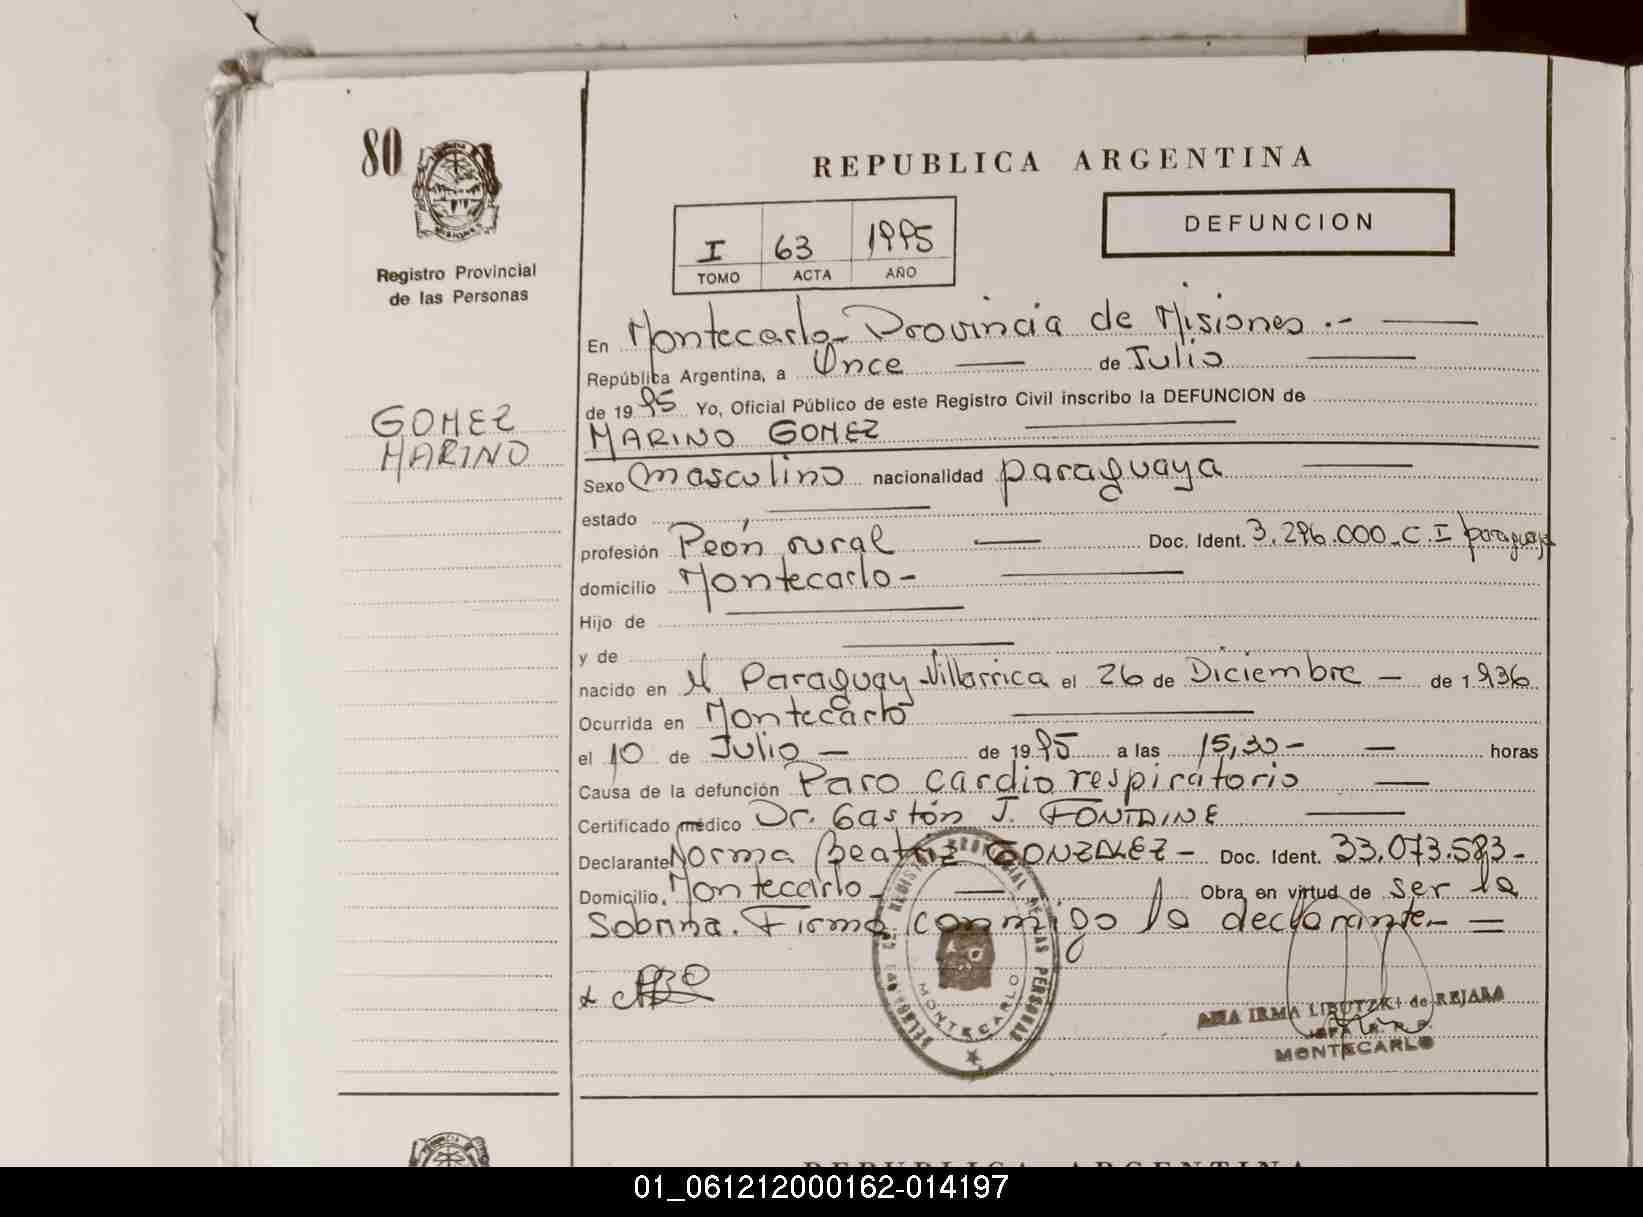 80
REPUBLICA ARGENTINA
DEFUNCION
I 63 1995
TOMO ACTA AÑO
Registro Provincial
de las Personas
GOMEZ
MARINO
En Montecarlo - Provincia de Misiones .-
República Argentina, a Once de Julio
de 1995 Yo, Oficial Público de este Registro Civil inscribo la DEFUNCION de
MARINO GOMEZ
Sexo masculino nacionalidad paraguaya
estado
profesión Peón rural Doc. Ident. 3.296.000. C.I paraguay
domicilio Montecarlo -
Hijo de
y de
nacido en Paraguay Villarrica el 26 de Diciembre - de 1936
Ocurrida en Montecarlo
el 10 de Julio - de 1995 a las 15,30 - horas
Causa de la defunción Paro cardio respiratorio
Certificado médico Dr. Gastón J. FONTAINE
Declarante Norma Beatriz GONZALEZ - Doc. Ident. 33.073.583 -
Domicilio, Montecarlo - Obra en virtud de ser la
Sobrina. Firma conmigo la declarante. =
REGISTRO PROVINCIAL DE LAS PERSONAS
MONTECARLO
ANA IRMA LIBUTZKI de REJALA
JEFA R. R. P.
MONTECARLO
REPUBLICA ARGENTINA
01_061212000162-014197